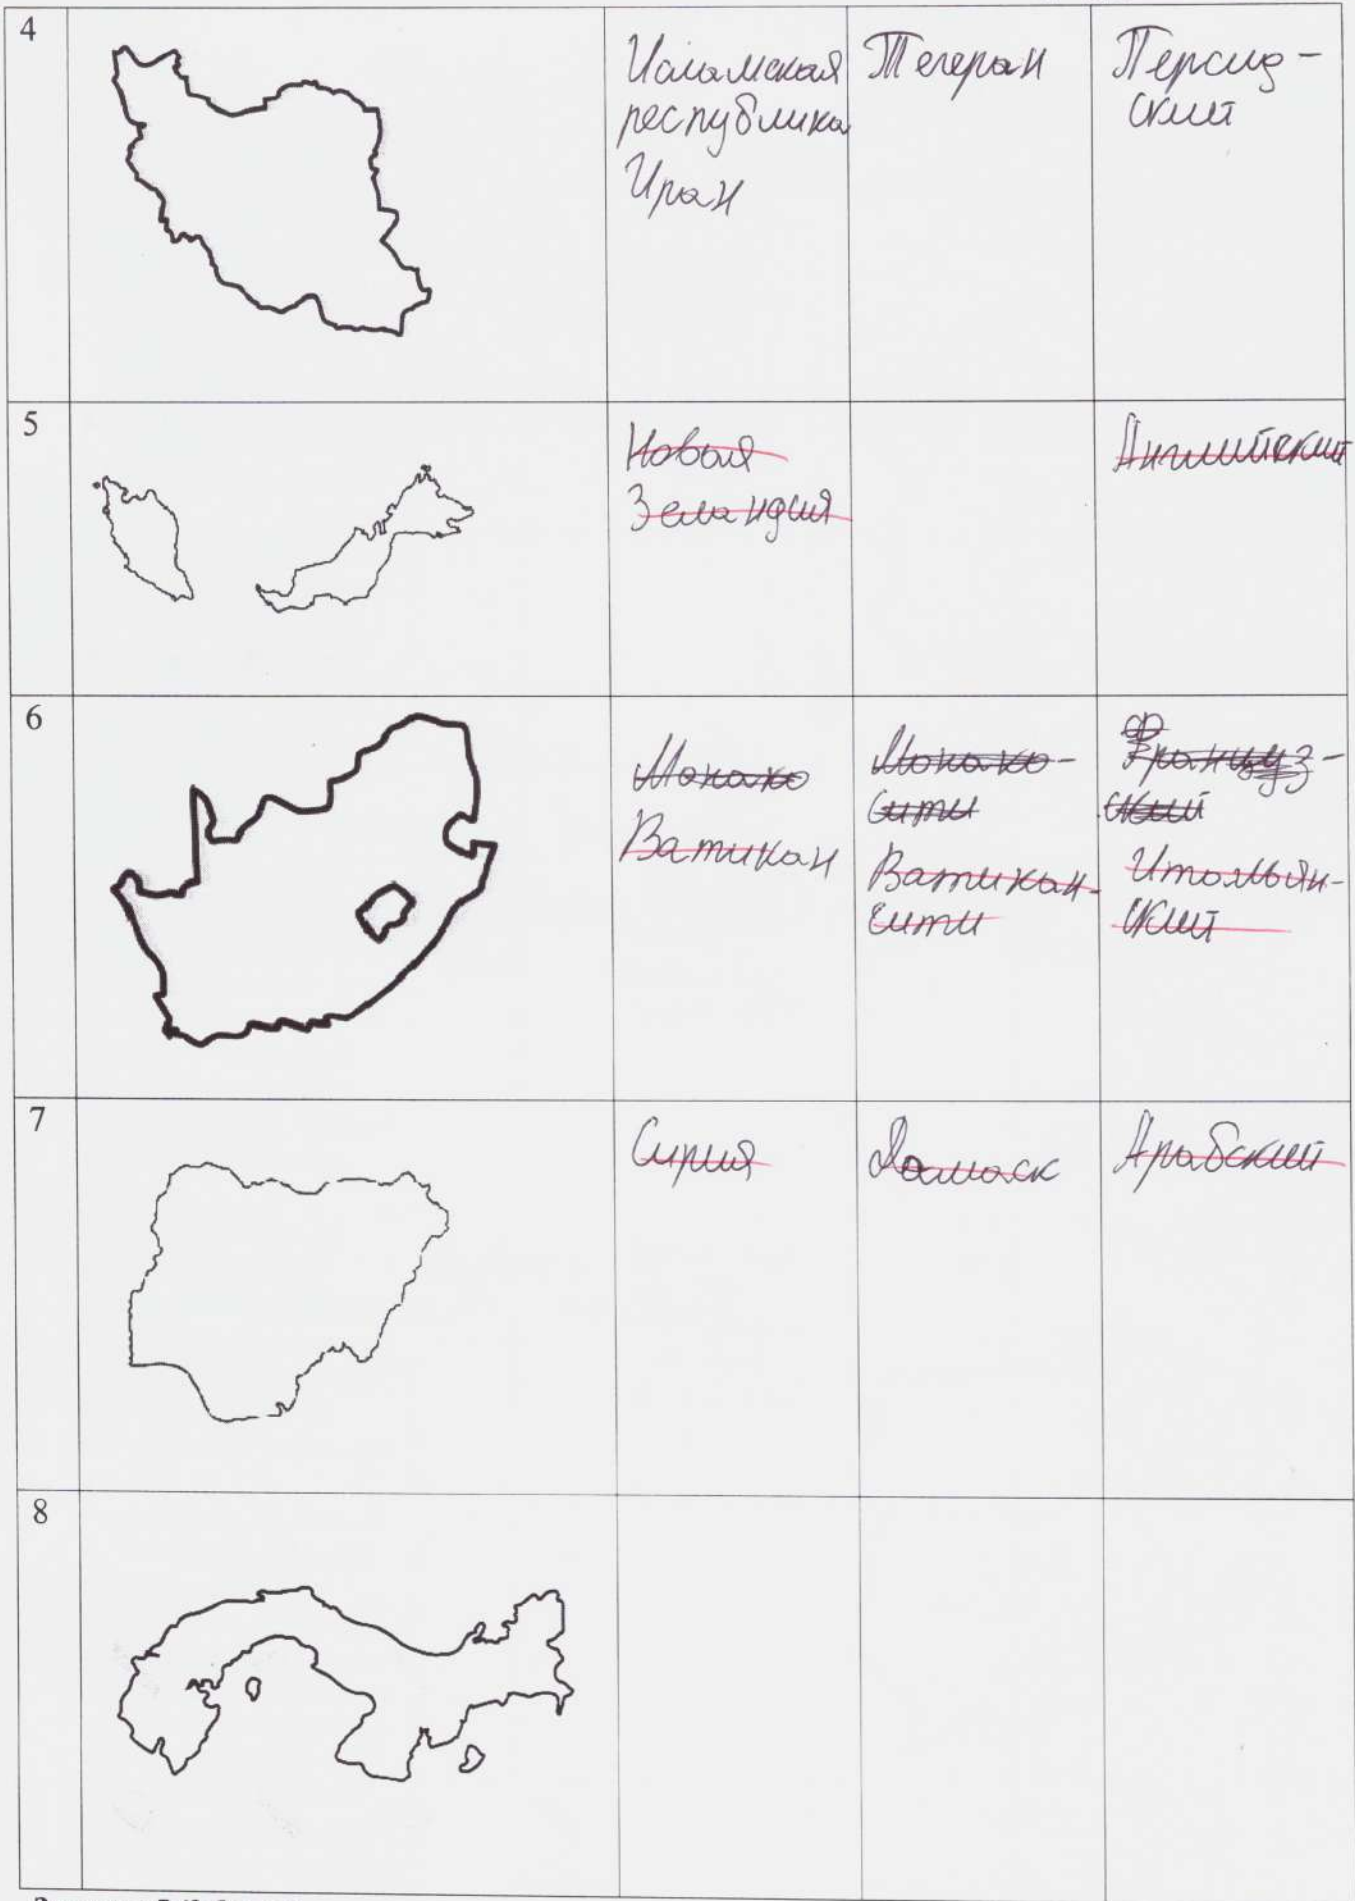 4
Исламская
республика
Иран
Тегеран
Персид-
ский
5
Новая
Зеландия
Английский
6
Монако
Ватикан
Монако-
сити
Ватикан-
сити
Француз-
ский
Итальян-
ский
7
Сирия
Дамаск
Арабский
8